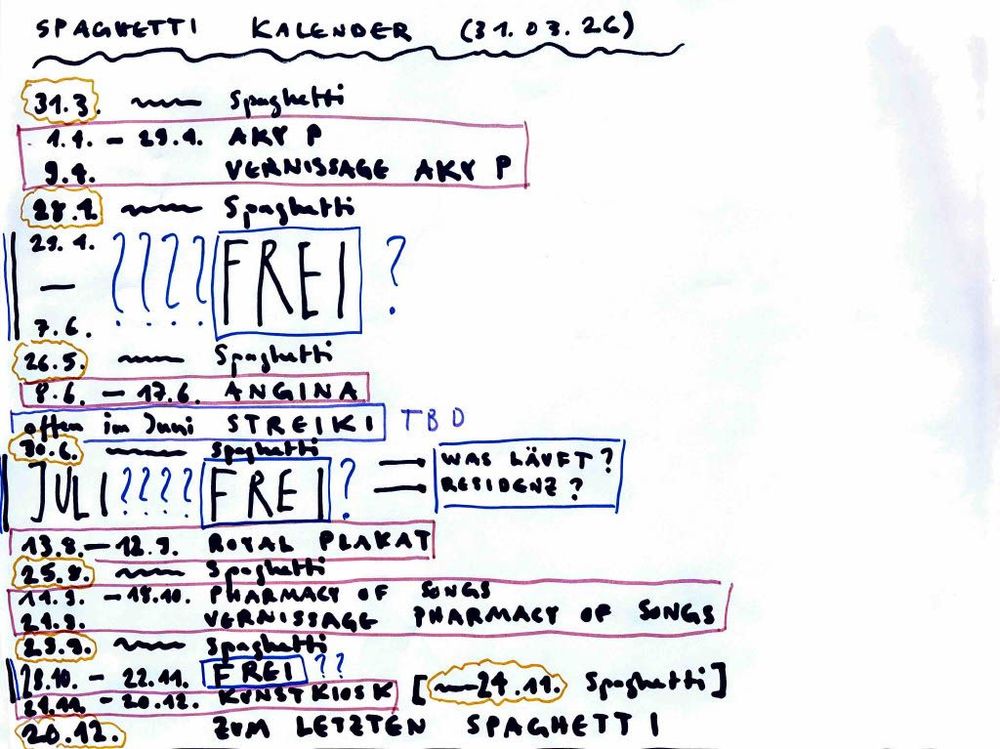 SPAGHETTI KALENDER (31.03.26)
31.3. Spaghetti
1.4. – 29.4. AKY P
9.4. VERNISSAGE AKY P
28.4. Spaghetti
29.4. – 7.6. ???? FREI ?
26.5. Spaghetti
8.6. – 17.6. ANGINA
offen im Juni STREIKI TBD
30.6. Spaghetti
JULI ???? FREI ? WAS LÄUFT?
RESIDENZ?
13.8. – 12.9. ROYAL PLAKAT
25.8. Spaghetti
– 18.10. PHARMACY OF SONGS
VERNISSAGE PHARMACY OF SONGS
29.9. Spaghetti
– 22.11. FREI ??
– 20.12. KUNSTKIOSK [ 24.11. Spaghetti]
20.12. ZUM LETZTEN SPAGHETTI